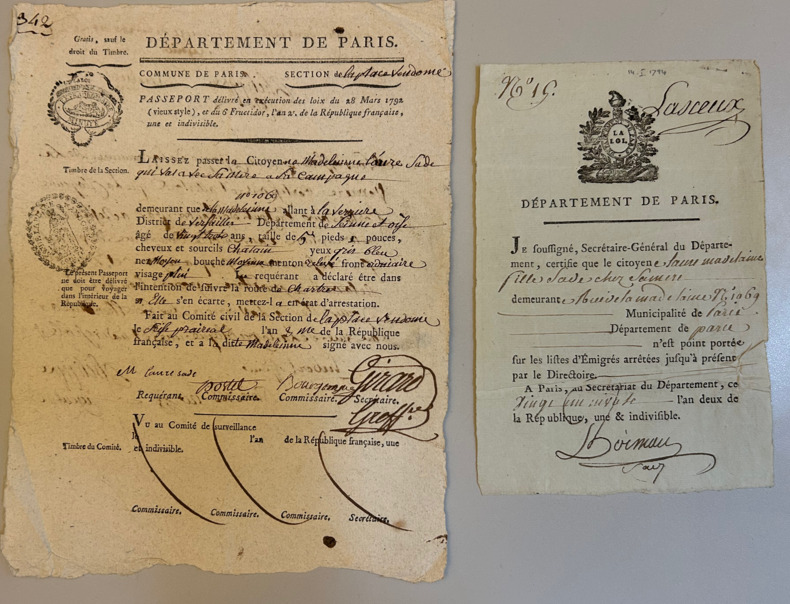 342
Gratis, sauf le
droit du Timbre.
DÉPARTEMENT DE PARIS.
COMMUNE DE PARIS. SECTION de la place vendome
PASSEPORT délivré en exécution des loix du 28 Mars 1792
(vieux style), et du 6 Fructidor, l'an 2e. de la République française,
une et indivisible.
Timbre de la Section.
LAISSEZ passer la Citoyenne Madeleinne Laure Sade
qui vas avec sa mere a la Campagne
no 1069
demeurant rue de la Madeleinne allant à
District de Versailles Département de Seinne et oise
âgé de vingt trois ans, taille de pieds pouces,
cheveux et sourcils Chatain yeux gris bleu
nez moyen bouche moyenne menton front
visage plein Le requérant a déclaré être dans
l'intention de suivre la route de Chartre
Elle s'en écarte, mettez-la en état d'arrestation.
Le présent Passeport
ne doit être délivré
que pour voyager
dans l'intérieur de la
République.
Fait au Comité civil de la Section de la place vendome
le prairial l'an 2 me de la République
française, et a la ditte Madeleinne signé avec nous.
M laure sade
Girard
Requérant. Commissaire. Commissaire. Secrétaire.
Greffier
VU au Comité de surveillance
le l'an de la République française, une
et indivisible.
Timbre du Comité.
Commissaire. Commissaire. Commissaire. Secrétaire.
14. I. 1794
No. 19.
LA
LOI.
DÉPARTEMENT DE PARIS.
JE soussigné, Secrétaire-Général du Département,
certifie que le citoyen Laure madelaine
fille Sade chez sa mere
demeurant Rue de la madelaine No. 1069
Municipalité de paris
Département de paris
n'est point portée
sur les listes d'Émigrés arrêtées jusqu'à présent
par le Directoire.
A Paris, au Secrétariat du Département, ce
vingt cinq nivose l'an deux de
la République, une & indivisible.